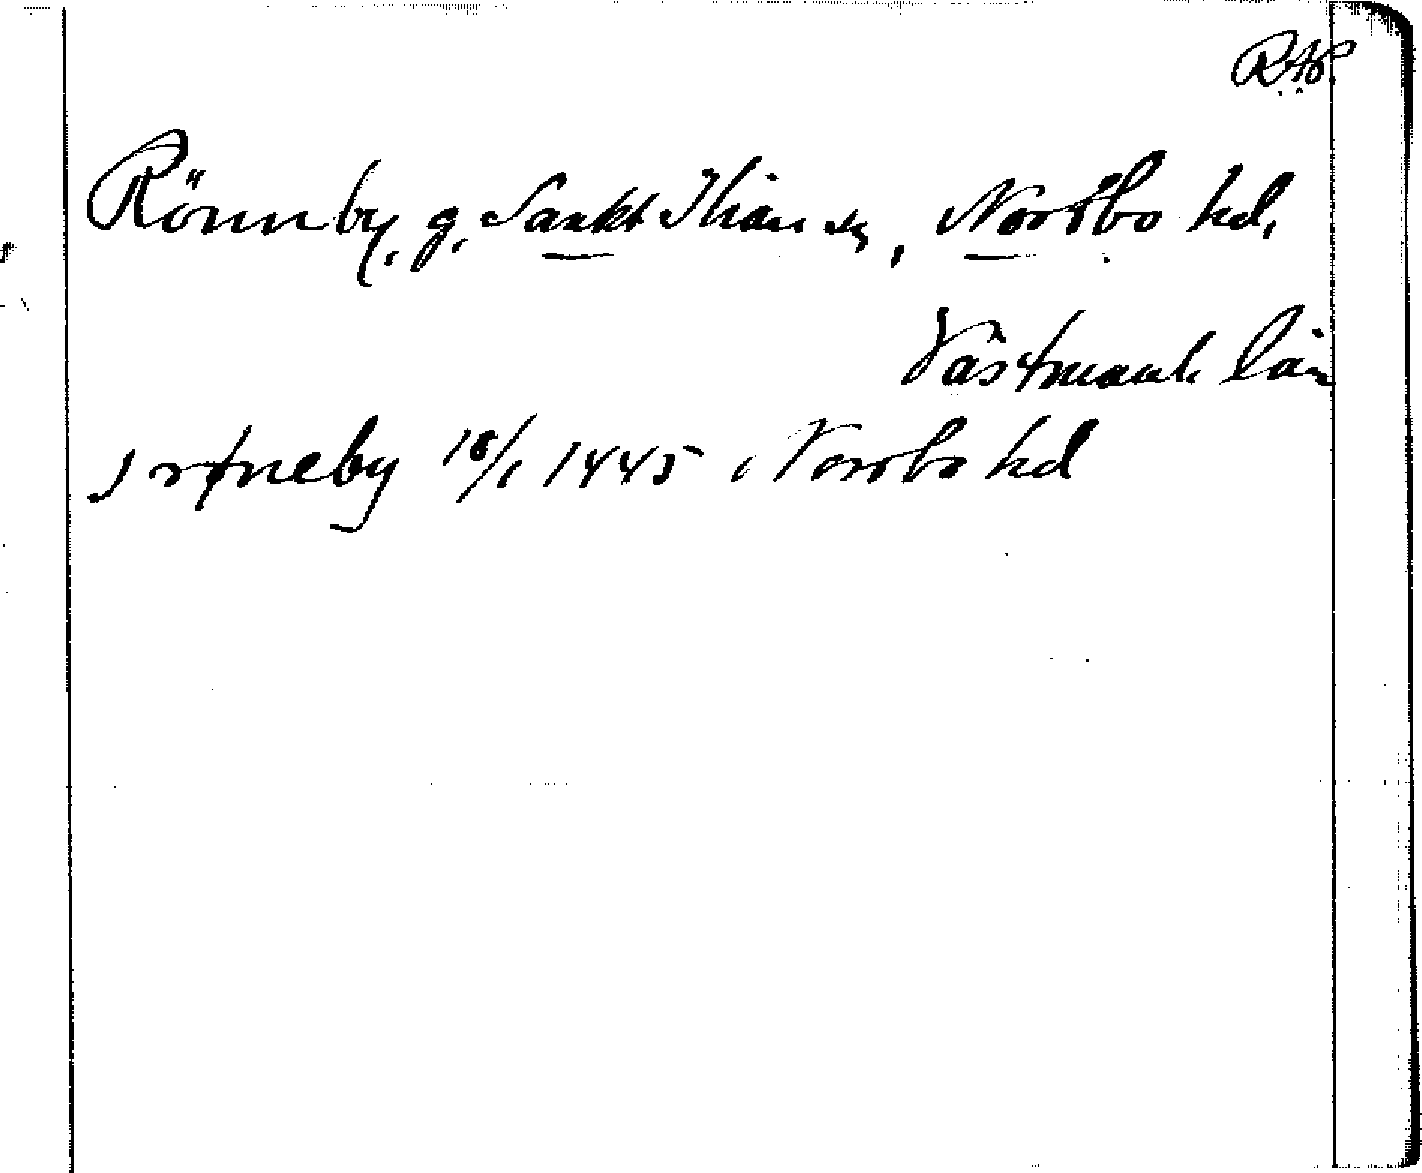 RAp.
Rönnby, g, Sankt Ilian sn, Norrbo hd,
Västmanl. län
J røneby 18/1 1445 i Norrbo hd